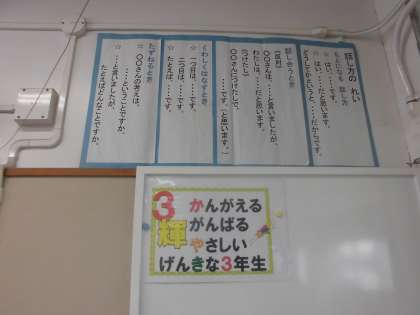 話し方の れい
もとになる 話し方
☆ はい、・・・です。
☆ はい、・・・だと思います。
どうしてかというと、・・・だからです。
話し合うとき
〔反対〕
〇〇さんは、・・・と言いましたが、
わたしは、・・・だと思います。
〔つけたし〕
〇〇さんにつけたしで、
・・・です。〔と思います。〕
くわしくはなすとき
☆ 一つ目は、・・・です。
二つ目は、・・・です。
☆ たとえば、・・・です。
たずねるとき
☆ 〇〇さんの考えは、
・・・ということですか。
☆ ・・・と言いましたが、
たとえばどんなことですか。
3 かんがえる
輝 がんばる
やさしい
げんきな3年生